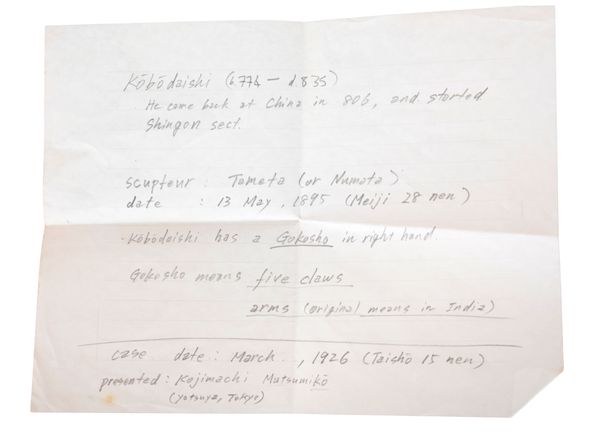 Kōbōdaishi (b.774 — d.835)
He come back at China in 806, and started
Shingon sect.
scupteur : Tameta (or Numata)
date : 13 May, 1895 (Meiji 28 nen)
·Kōbōdaishi has a Gokosho in right hand.
Gokosho means five claws
arms (original means in India)
case date : March .., 1926 (Taishō 15 nen)
presented : Kojimachi Matsumikō
(Yotsuya, Tokyo)